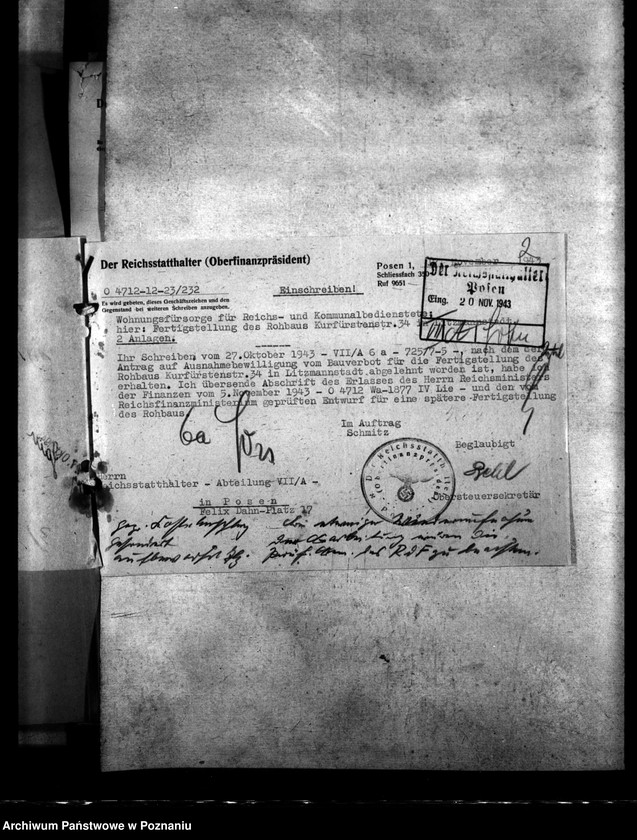 2
Der Reichsstatthalter (Oberfinanzpräsident)
Posen 1,
Schliessfach
Ruf 9651
Der Reichsstatthalter
Posen
Eing. 20 NOV. 1943
O 4712-12-23/232
Einschreiben!
Es wird gebeten, dieses Geschäftszeichen und den
Gegenstand bei weiteren Schreiben anzugeben.
Wohnungsfürsorge für Reichs- und Kommunalbedienstete;
hier: Fertigstellung des Rohbaus Kurfürstenstr.34 in
2 Anlagen.
Ihr Schreiben vom 27.Oktober 1943 - VII/A 6 a - 725/7-5 -, nach dem der
Antrag auf Ausnahmebewilligung vom Bauverbot für die Fertigstellung des
Rohbaus Kurfürstenstr.34 in Litzmannstadt abgelehnt worden ist, habe ich
erhalten. Ich übersende Abschrift des Erlasses des Herrn Reichsministers
der Finanzen vom 5.November 1943 - O 4712 Wa-1877 IV Lie - und den vom
Reichsfinanzministerium geprüften Entwurf für eine spätere Fertigstellung
des Rohbaus.
Im Auftrag
Schmitz
6a
Beglaubigt
Obersteuersekretär
Herrn
Reichsstatthalter - Abteilung VII/A -
in Posen
Felix Dahn-Platz 17
des RdF zu beachten.
Archiwum Państwowe w Poznaniu